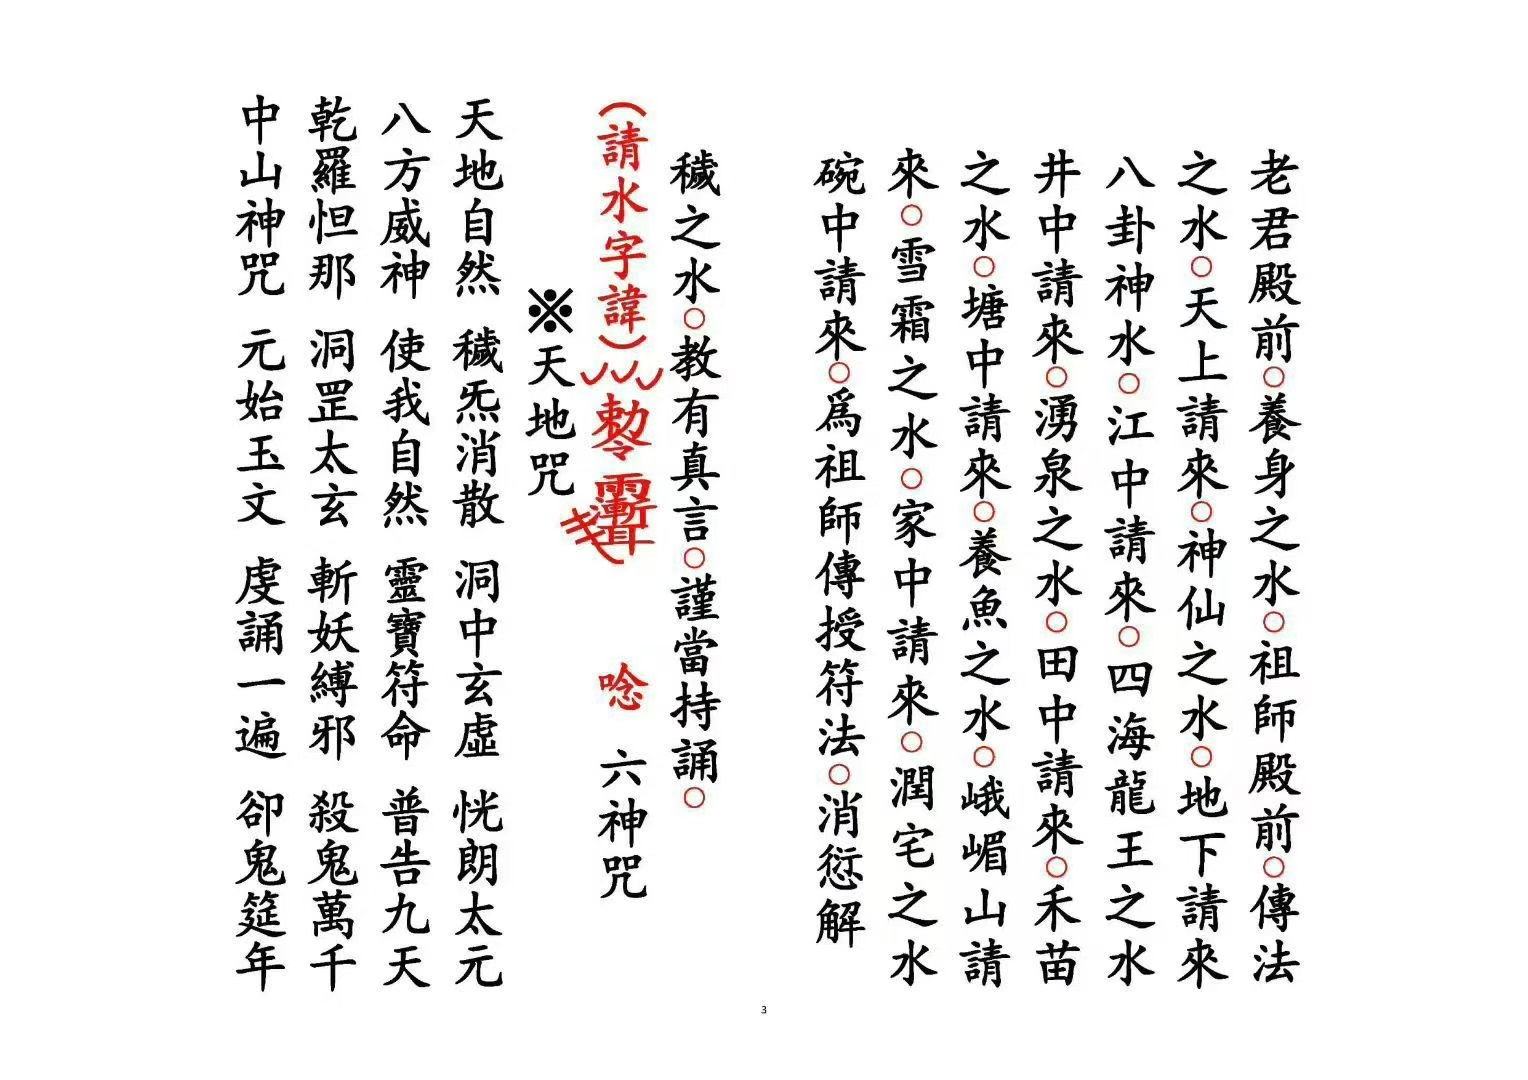 老君殿前○養身之水○祖師殿前○傳法
之水○天上請來○神仙之水○地下請來
八卦神水○江中請來○四海龍王之水
井中請來○湧泉之水○田中請來○禾苗
之水○塘中請來○養魚之水○峨嵋山請
來○雪霜之水○家中請來○潤宅之水
碗中請來○爲祖師傳授符法○消愆解
穢之水○教有真言○謹當持誦○
(請水字諱) 勅令 唸 六神咒
※天地咒
天地自然 穢炁消散 洞中玄虛 恍朗太元
八方威神 使我自然 靈寶符命 普告九天
乾羅怛那 洞罡太玄 斬妖縛邪 殺鬼萬千
中山神咒 元始玉文 虔誦一遍 卻鬼筵年
3